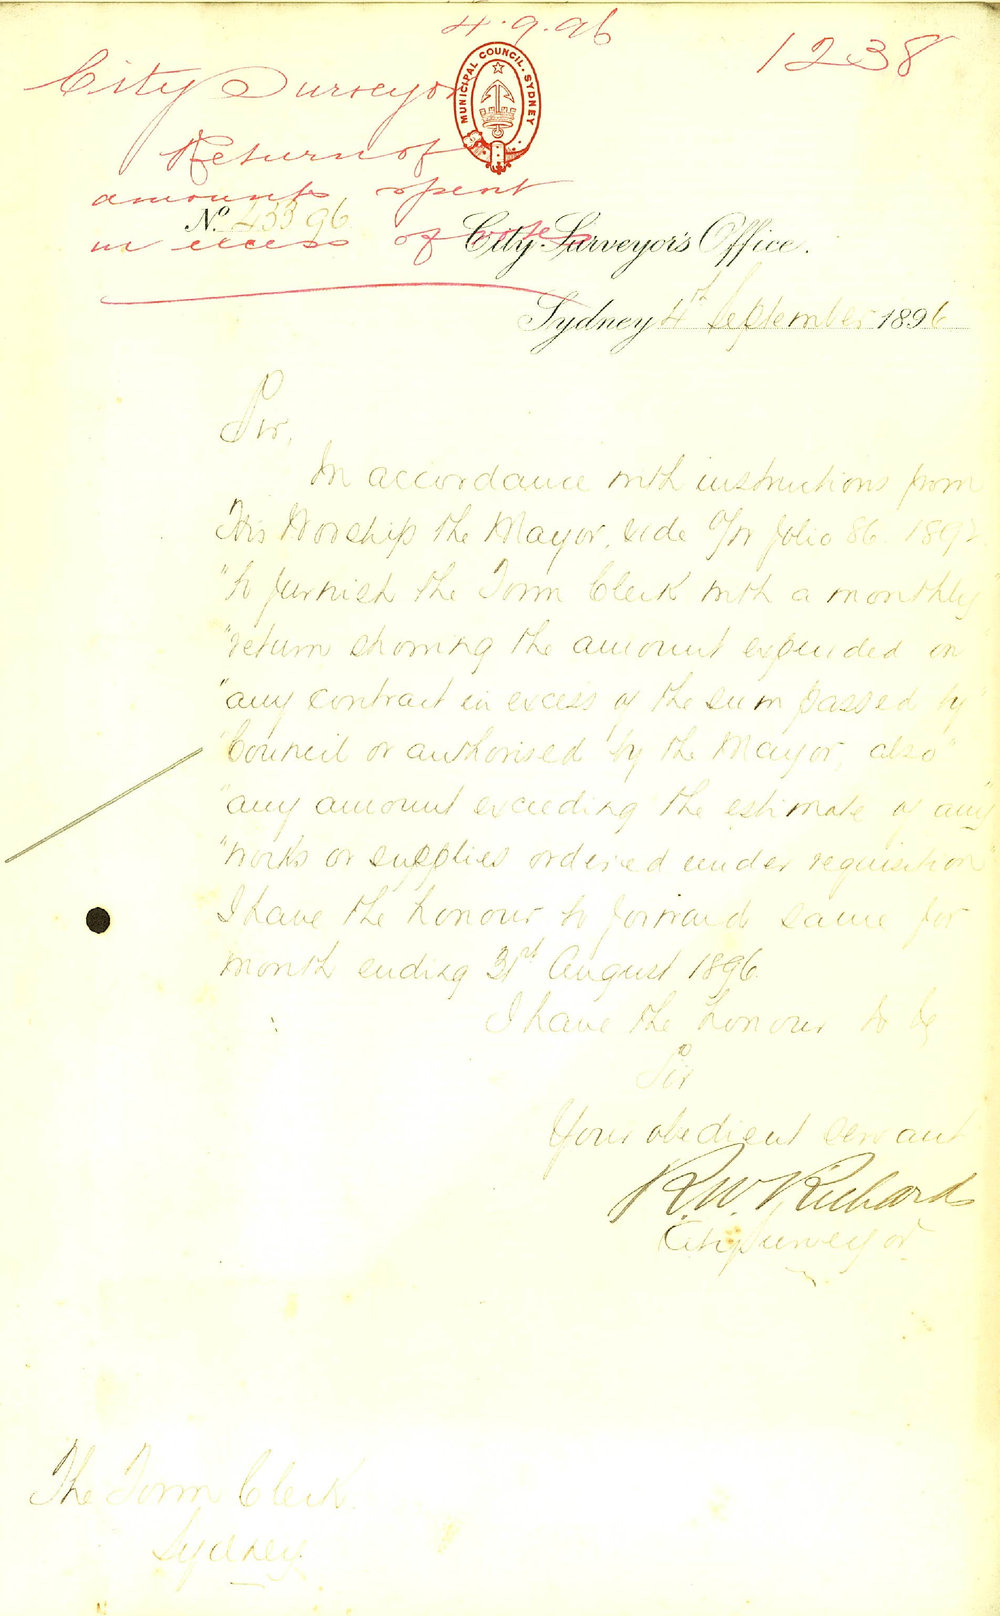 4.9.96
1238
City Surveyor
Return of
amounts spent
in excess of votes
MUNICIPAL COUNCIL. SYDNEY
No. 433 96
City Surveyor's Office.
Sydney 4th September 1896
Sir,
In accordance with instructions from
His Worship the Mayor, vide folio 86. 1892
"to furnish the Town Clerk with a monthly"
"return showing the amount expended on"
"any contract in excess of the sum passed by"
"Council or authorised by the Mayor, also"
"any amount exceeding the estimate of any"
"works or supplies ordered under requisition"
I have the honour to forward same for
month ending 31st August 1896
I have the honour to be
Sir
Your obedient servant
R.W. Richards
City Surveyor
The Town Clerk
Sydney